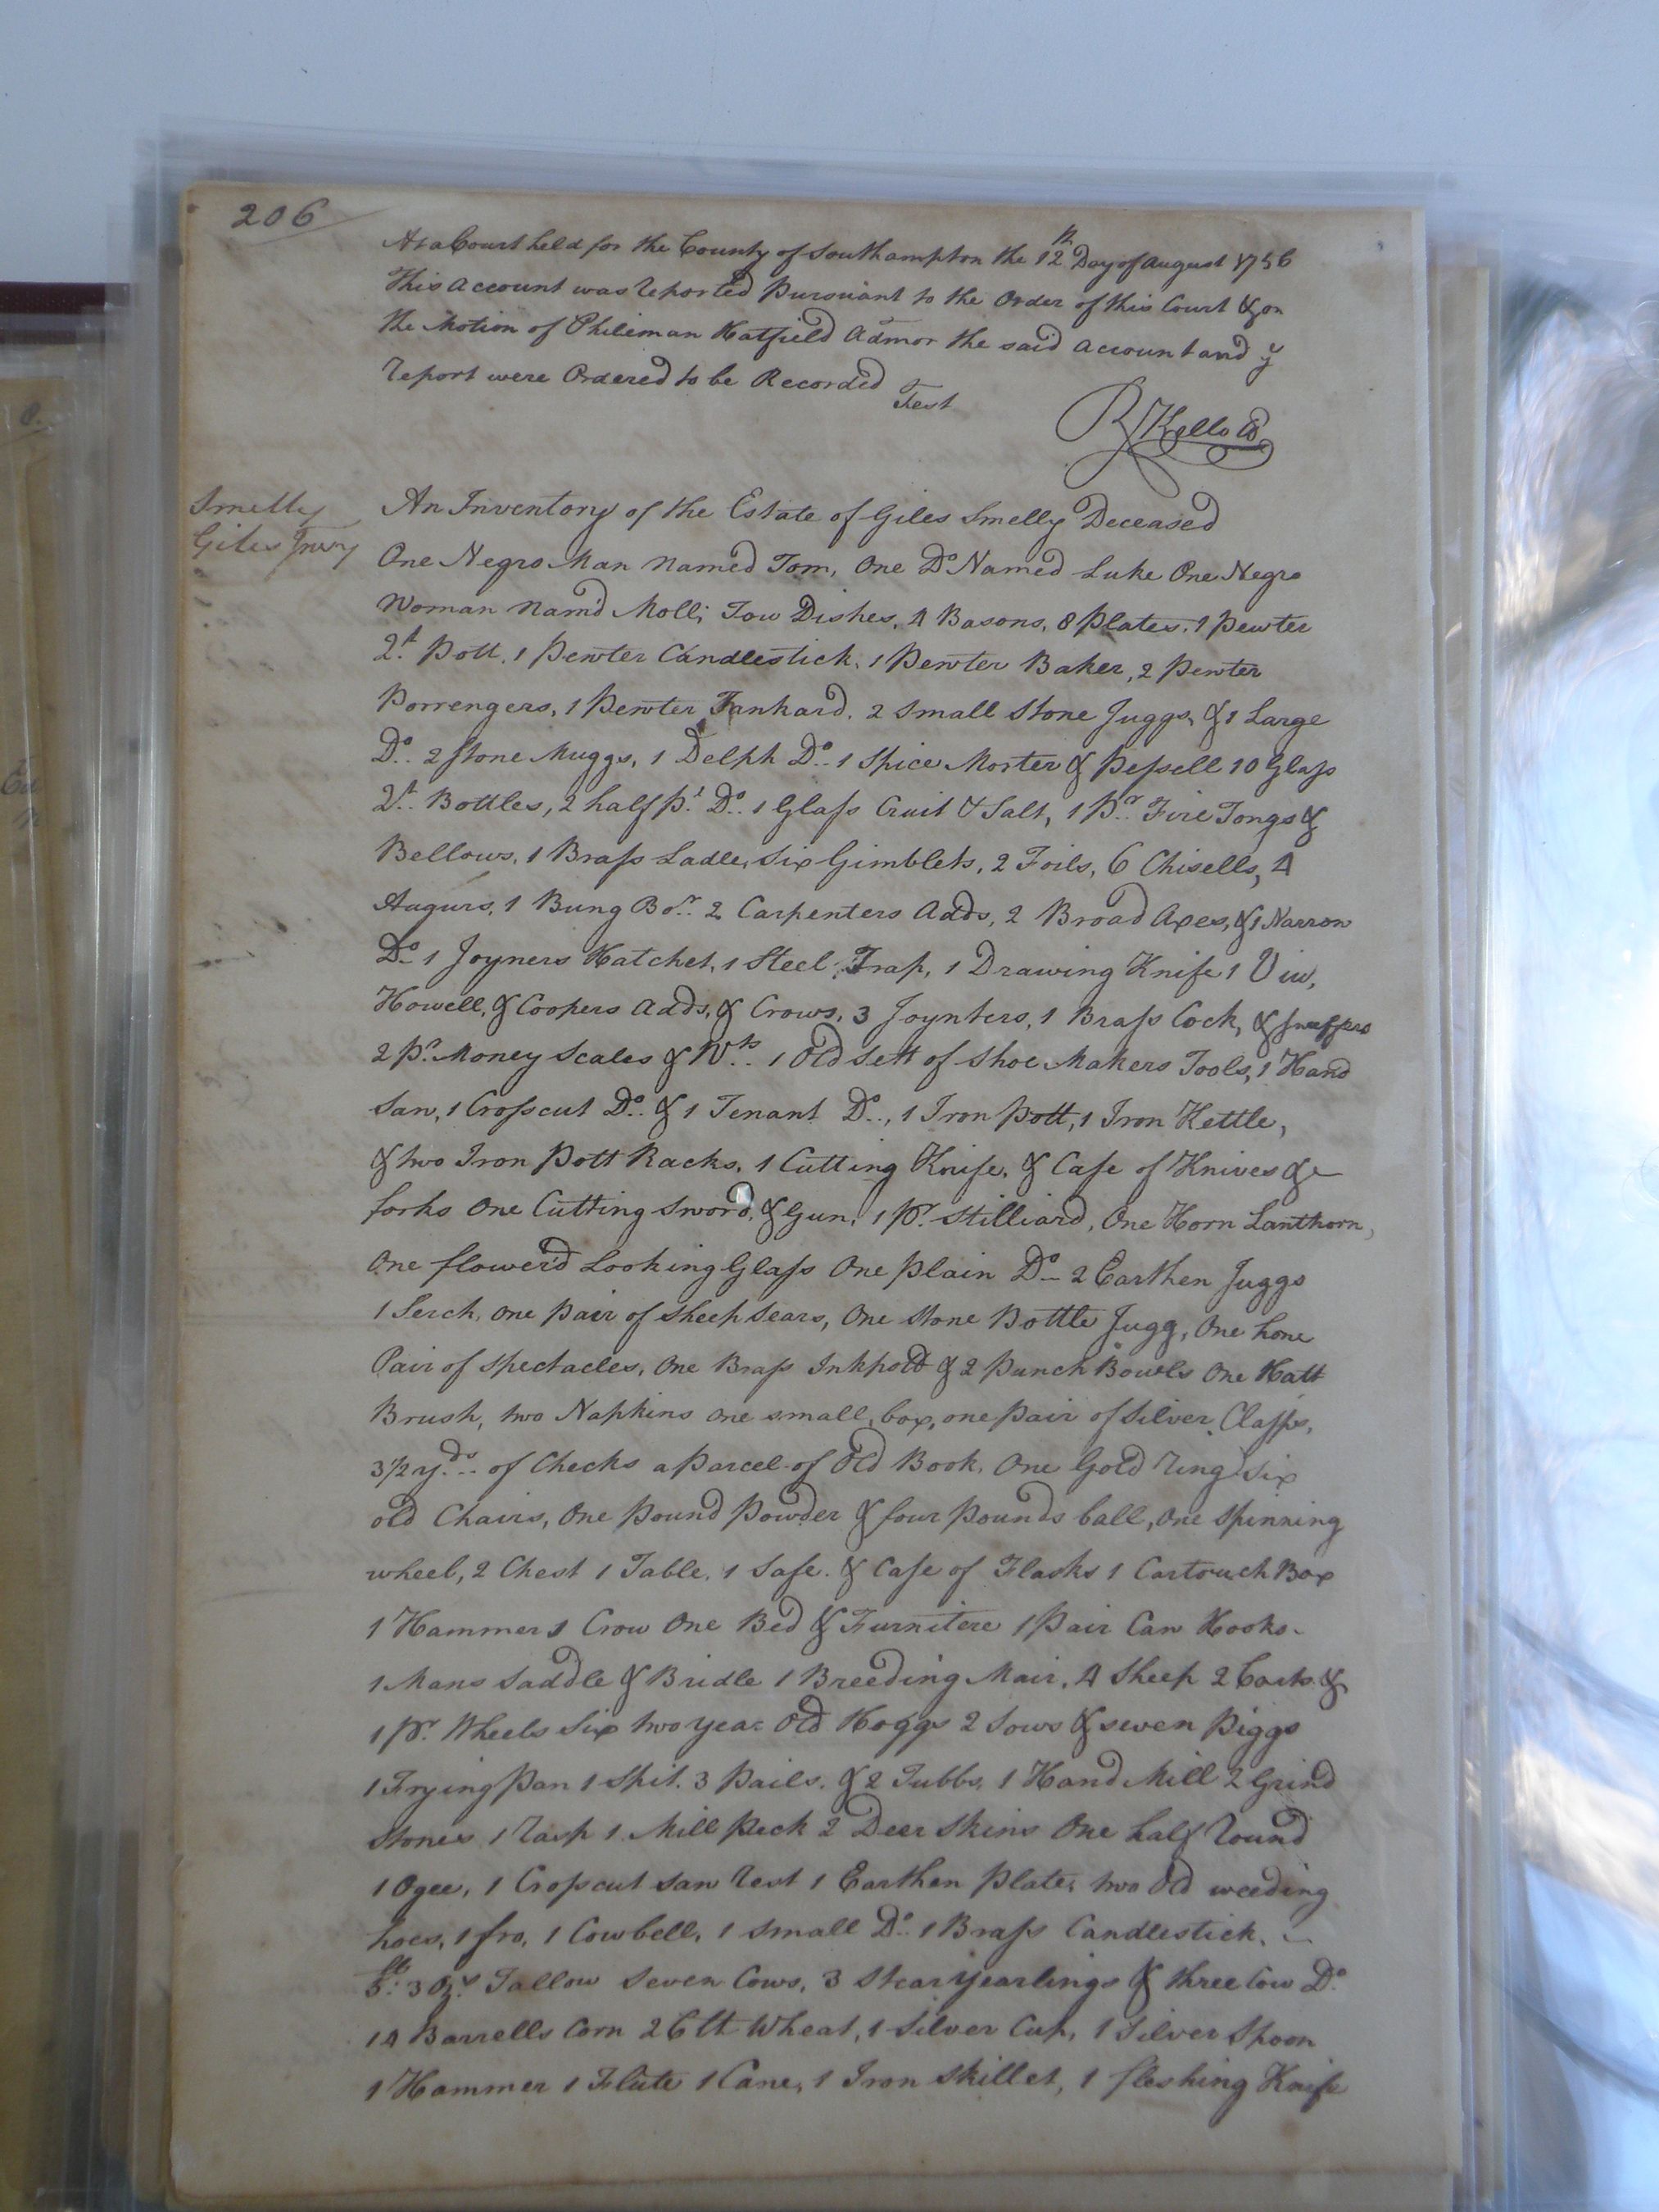 206
At a Court held for the County of Southampton the 12th Day of August 1756
This Account was Reported Pursuant to the Order of this Court & on
the Motion of Phileman Hatfield Admor the said Account and ye
Report were Ordered to be Recorded
Test
R Kello
Smelly
Giles Invry
An Inventory of the Estate of Giles Smelly Deceased
One Negro Man named Tom, One Do Named Luke One Negro
Woman Nam'd Moll; Tow Dishes, 4 Basons, 8 Plates, 1 Pewter
Qt. Pott, 1 Pewter Candlestick, 1 Pewter Baker, 2 Pewter
Porrengers, 1 Pewter Tankard, 2 Small Stone Juggs, & 1 Large
Do. 2 Stone Muggs, 1 Delph Do. 1 Spice Morter & Pessell 10 Glass
Qt. Bottles, 2 half Pt. Do. 1 Glass Cruit & Salt, 1 Pr. Fire Tongs &
Bellows, 1 Brass Ladle, Six Gimblets, 2 Foils, 6 Chisells, 4
Augurs, 1 Bung Bor. 2 Carpenters Adds, 2 Broad Axes, & 1 Narrow
Do 1 Joyners Hatchet, 1 Steel Trap, 1 Drawing Knife 1
Howell, & Coopers Adds, & Crows, 3 Joynters, 1 Brass Cock, & Snuffers
2 Pr. Money Scales & Wts. 1 Old Sett of Shoe Makers Tools, 1 Hand
Saw, 1 Crosscut Do. & 1 Tenant Do., 1 Iron Pott, 1 Iron Kettle,
& two Iron Pott Racks, 1 Cutting Knife, & Case of Knives &
forks One Cutting Sword, & Gun, 1 Pr. Stilliard, One Horn Lanthorn,
One flower'd Looking Glass One Plain Do 2 Earthen Juggs
1 Serch, one Pair of Sheep Sears, One Stone Bottle Jugg, One hone
Pair of Spectacles, One Brass Inkpott & 2 Punch Bowls One Hatt
Brush, two Napkins one small box, one pair of Silver Clasps,
3 1/2 yds. of Checks a Parcel of Old Book, One Gold Ring Six
old Chairs, One Pound Powder & four Pounds ball, One Spinning
wheel, 2 Chest 1 Table, 1 Safe. & Case of Flasks 1 Cartouch Box
1 Hammer 1 Crow One Bed & Furnitere 1 Pair Can Hooks
1 Mans Saddle & Bridle 1 Breeding Mair, 4 Sheep 2 Carts &
1 Pr. Wheels Six two year Old Hoggs 2 Sows & seven Piggs
1 Frying Pan 1 Spit. 3 Pails, & 2 Tubbs, 1 Hand Mill 2 Grind
Stones 1 Rasp 1 Mill Peck 2 Deer Skins One half Round
1 Ogee, 1 Crosscut Saw Rest 1 Earthen Plate, two Old weeding
hoes, 1 fro, 1 Cowbell, 1 Small Do. 1 Brass Candlestick,
5 lb. 3 Ozs. Tallow Seven Cows, 3 Stear Yearlings & three Cow Do.
14 Barrells Corn 26 lb Wheat, 1 Silver Cup, 1 Silver Spoon
1 Hammer 1 Flute 1 Cane, 1 Iron Skillet, 1 fleshing Knife